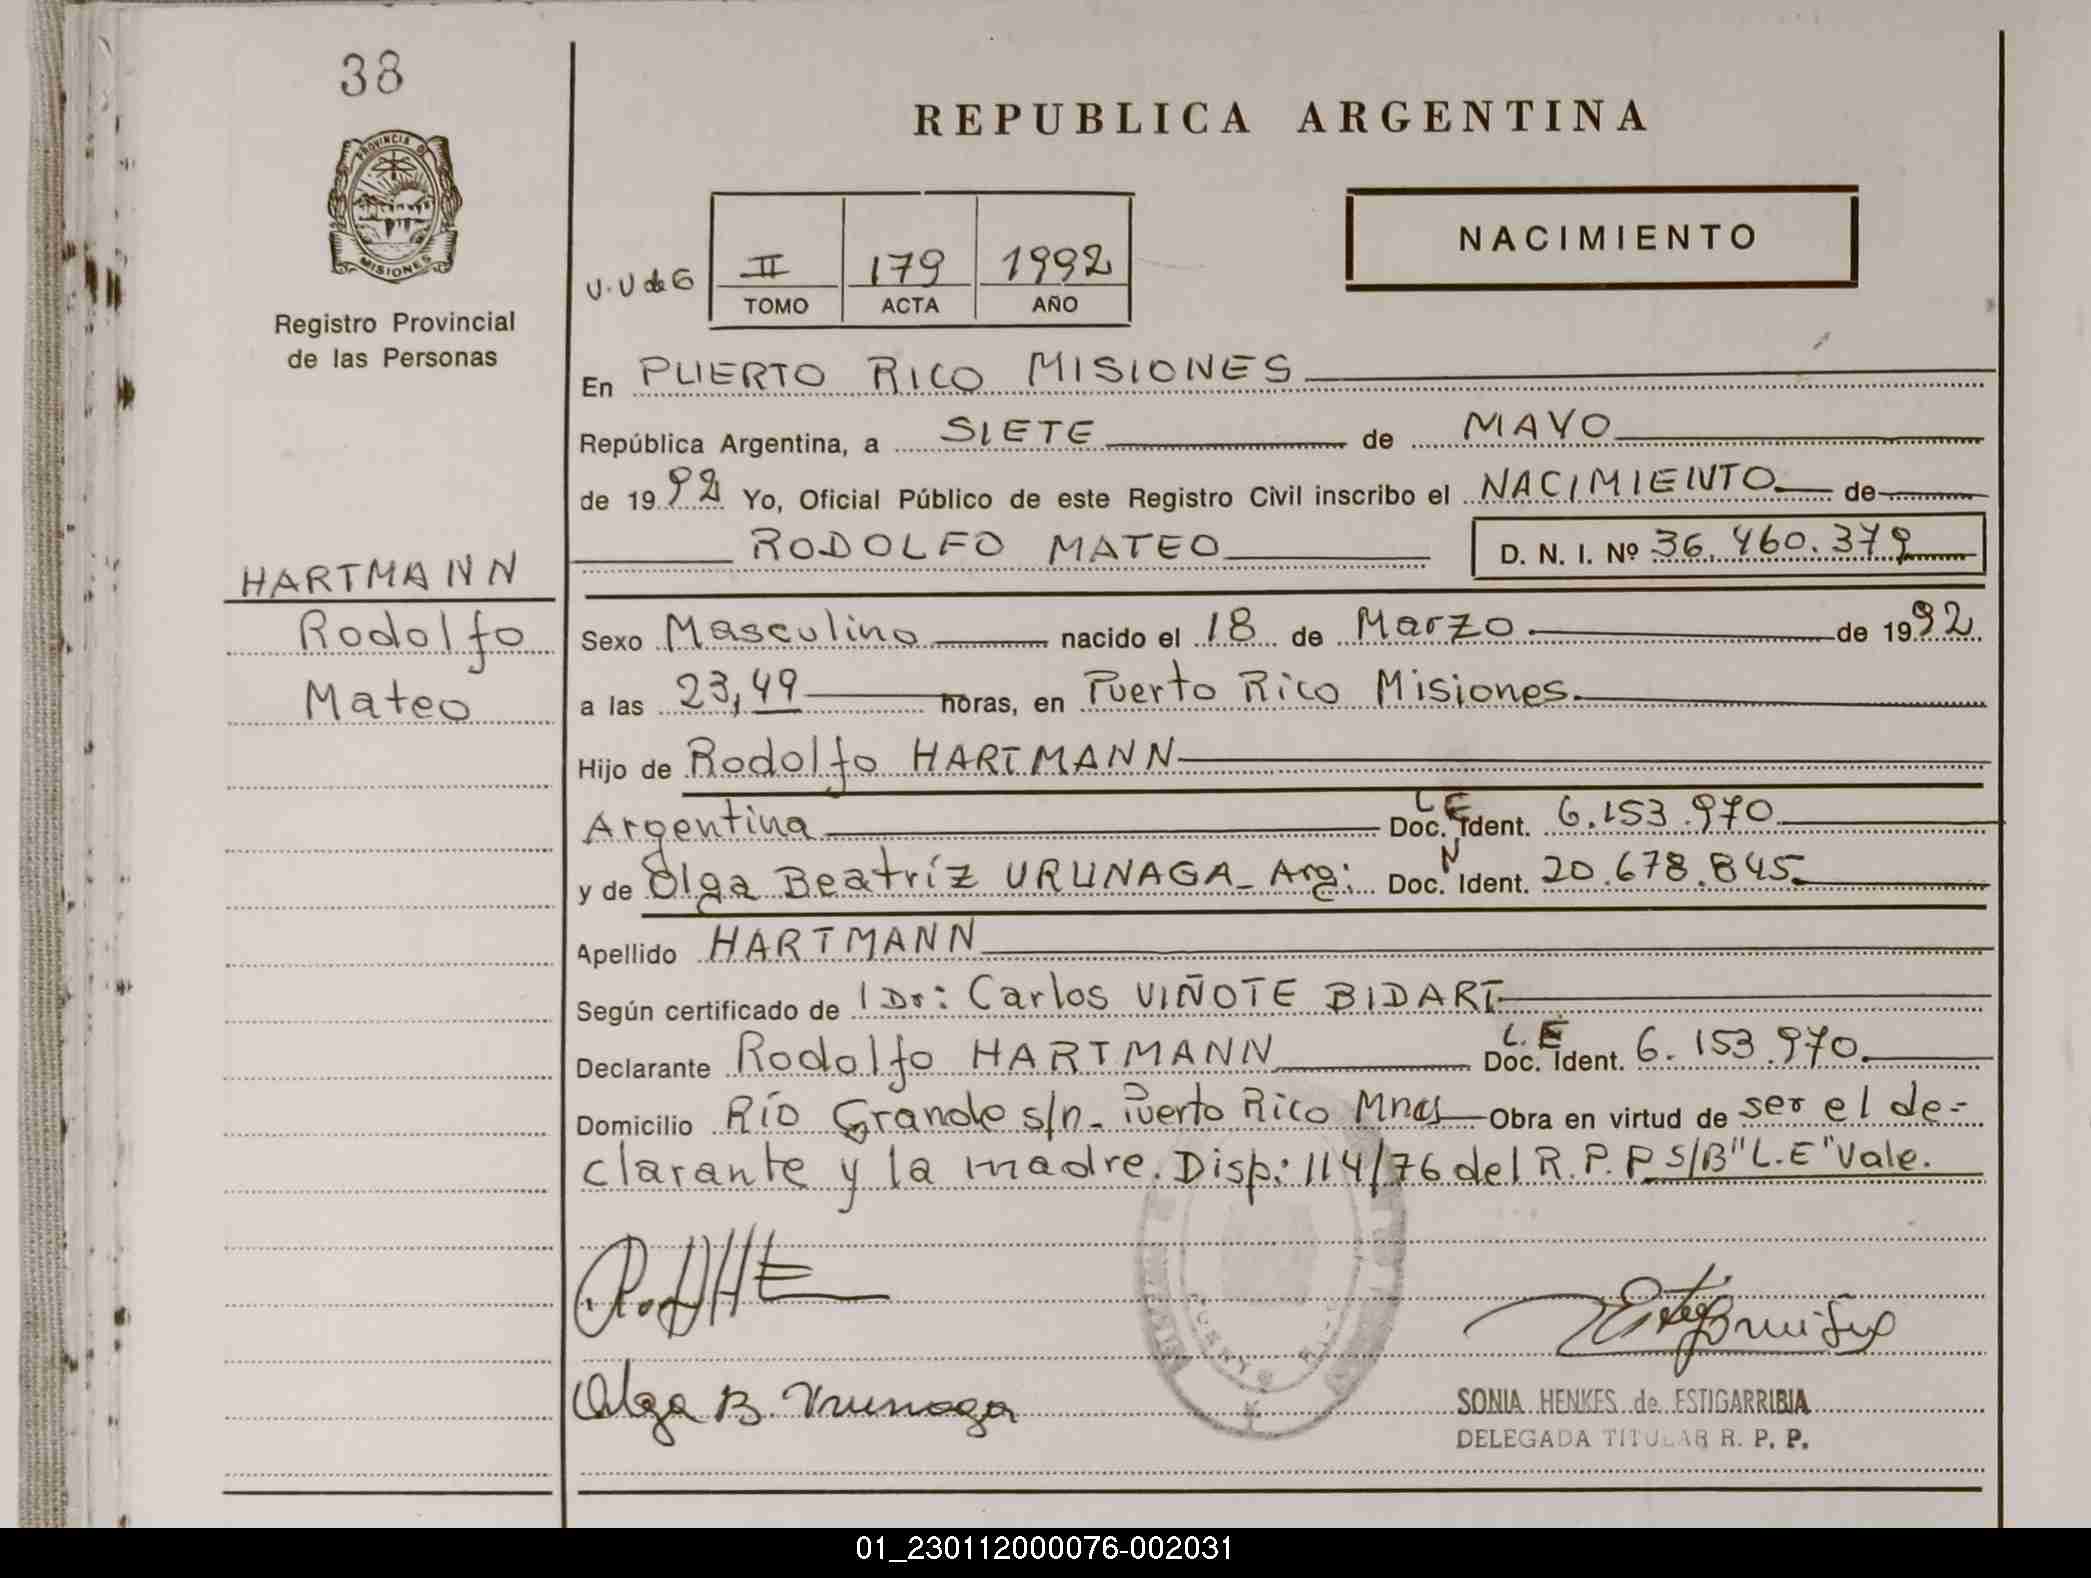 38
REPUBLICA ARGENTINA
PROVINCIA D
MISIONES
NACIMIENTO
U.U de G
II 179 1992
TOMO ACTA AÑO
Registro Provincial
de las Personas
En PUERTO RICO MISIONES
República Argentina, a SIETE de MAYO
de 1992 Yo, Oficial Público de este Registro Civil inscribo el NACIMIENTO de
RODOLFO MATEO D. N. I. Nº 36.460.379
HARTMANN
Rodolfo
Mateo
Sexo Masculino nacido el 18 de Marzo de 1992
a las 23,49 horas, en Puerto Rico Misiones
Hijo de Rodolfo HARTMANN
Argentina Doc. LE Ident. 6.153.970
y de Olga Beatríz URUNAGA Arg: Doc. N Ident. 20.678.845
Apellido HARTMANN
Según certificado de l Dr: Carlos VIÑOTE BIDART
Declarante Rodolfo HARTMANN Doc. L.E Ident. 6.153.970
Domicilio Río Grande s/n- Puerto Rico Mnes Obra en virtud de ser el de-
clarante y la madre. Disp: 114/76 del R.P.P S/B "L.E" Vale.
Olga B. Urunaga
SONIA HENKES de ESTIGARRIBIA
DELEGADA TITULAR R. P. P.
01_230112000076-002031